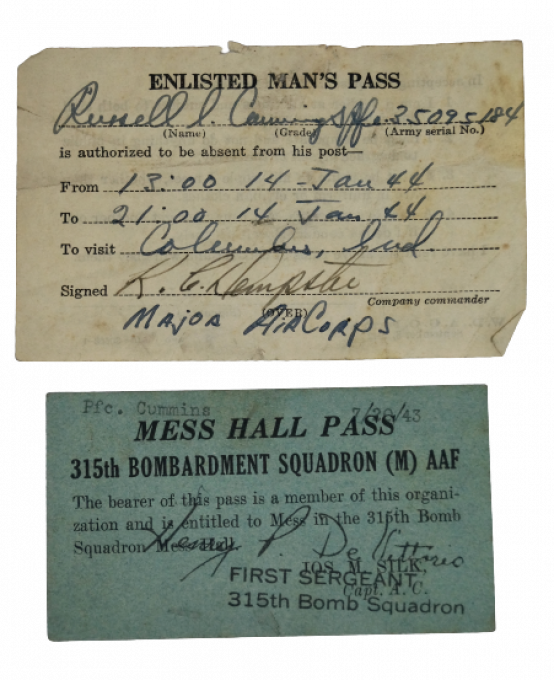 ENLISTED MAN'S PASS
Russell L. Cummings Pfc. 35095184
(Name) (Grade) (Army serial No.)
is authorized to be absent from his post—
From 13:00 14-Jan 44
To 21:00 14 Jan 44
To visit Columbus, Ind.
Signed R. C. Dempster
Company commander
(OVER)
MAJOR AIRCORPS
Pfc. Cummins 7/20/43
MESS HALL PASS
315th BOMBARDMENT SQUADRON (M) AAF
The bearer of this pass is a member of this organi-
zation and is entitled to Mess in the 315th Bomb
Squadron Mess Hall
Henry P. De Vittorio
JOS M. SILK,
FIRST SERGEANT,
Capt. A.C.
315th Bomb Squadron